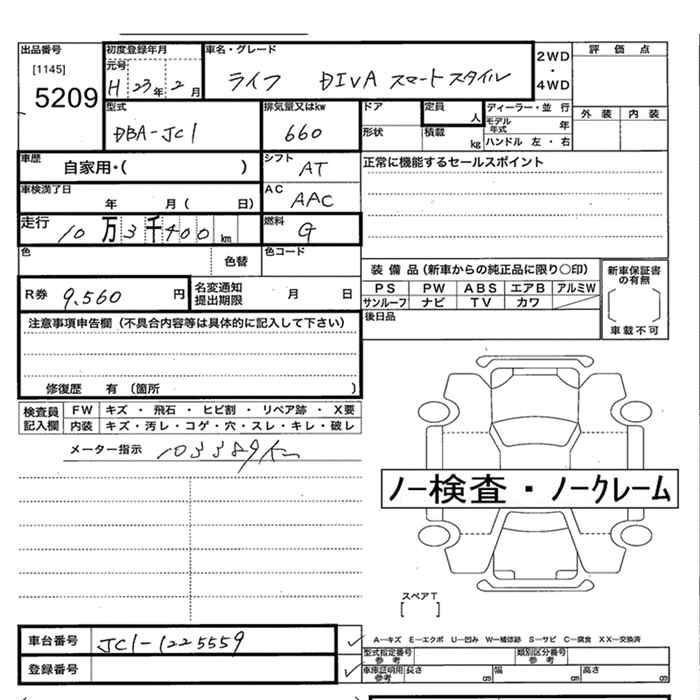 出品番号
[1145]
5209
初度登録年月
元号
H 23年 2月
車名・グレード
ライフ DIVA スマートスタイル
2WD
・
4WD
評価点
外装 内装
型式
DBA-JC1
排気量又はkw
660
ドア
形状
定員
人
積載
kg
ディーラー・並行
モデル年式 年
ハンドル 左・右
車歴
自家用・( )
シフト
AT
正常に機能するセールスポイント
車検満了日
年 月( 日)
AC
AAC
走行
10万3千400km
燃料
G
色
色替
色コード
R券
9,560円
名変通知
提出期限
月 日
装備品(新車からの純正品に限り○印)
PS PW ABS エアB アルミW
サンルーフ ナビ TV カワ
新車保証書
の有無
車載不可
後日品
注意事項申告欄(不具合内容等は具体的に記入して下さい)
修復歴 有(箇所 )
検査員
記入欄
FW キズ・飛石・ヒビ割・リペア跡・X要
内装 キズ・汚レ・コゲ・穴・スレ・キレ・破レ
メーター指示 103389Km
ノー検査・ノークレーム
スペアT
[ ]
車台番号 JC1-1225559
登録番号
A―キズ E―エクボ U―凹み W―補修跡 S―サビ C―腐食 XX―交換済
型式指定番号
参考
類別区分番号
参考
車庫証明用
参考
長さ cm
幅 cm
高さ cm